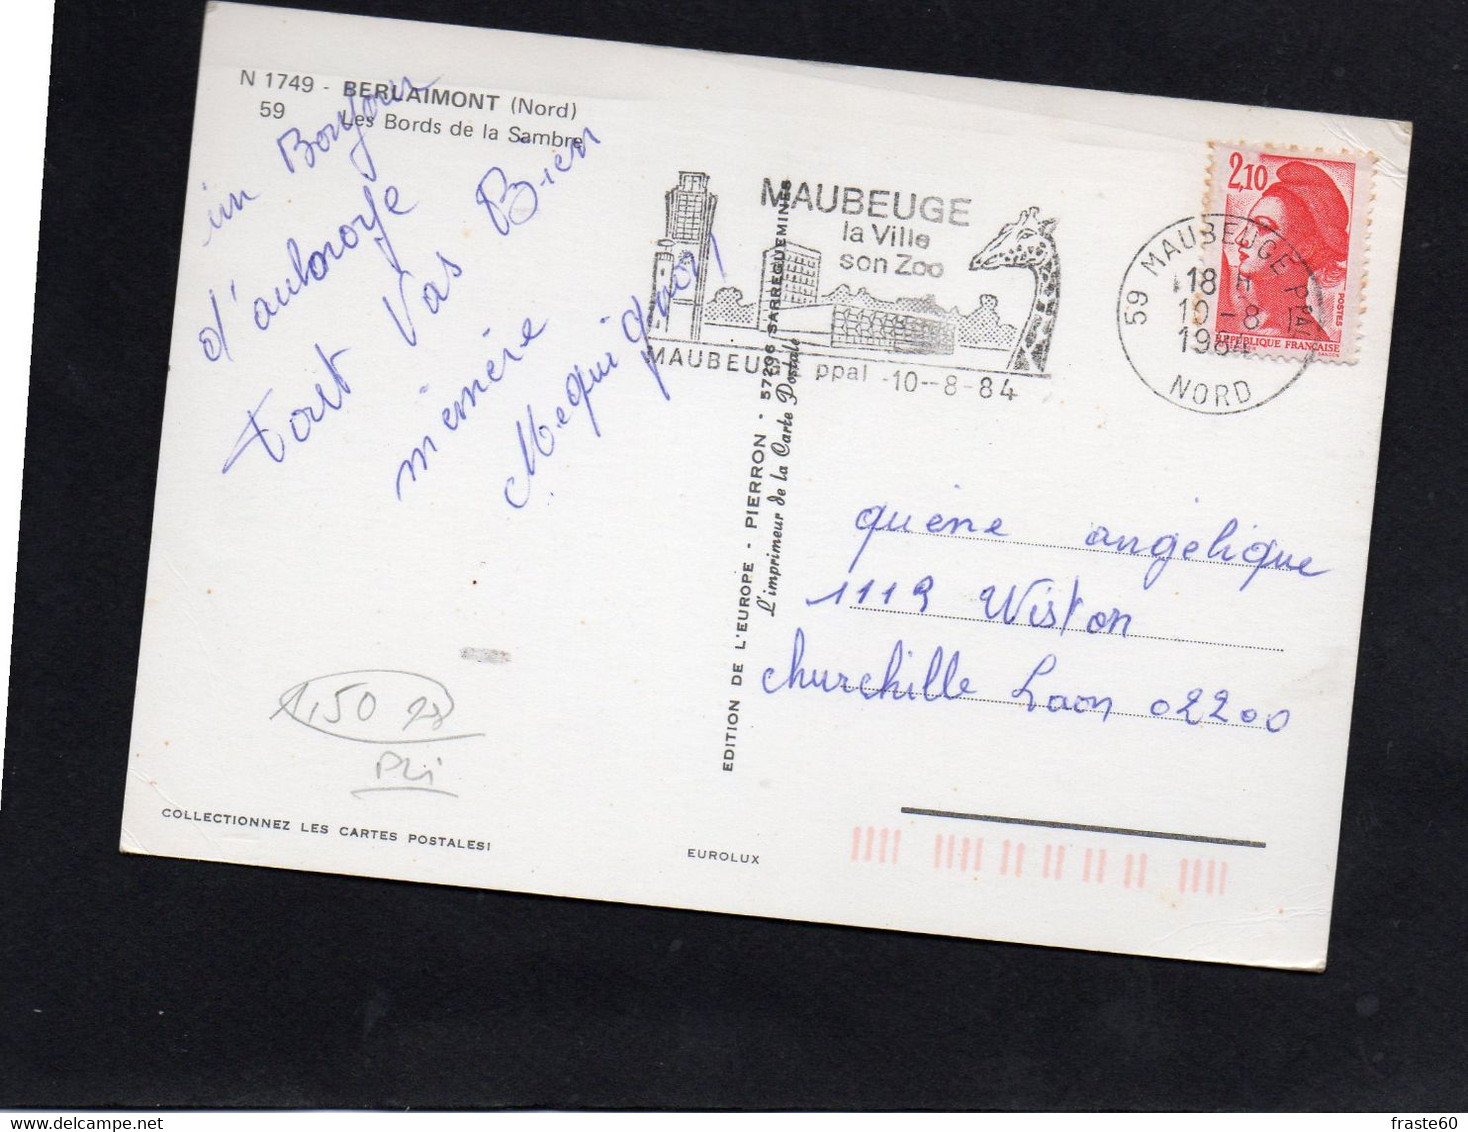 N 1749 - BERLAIMONT (Nord)
59 Les Bords de la Sambre
un Bonjour
d'aulnoye
tout Vas Bien
mémère
Mequignon
MAUBEUGE
la Ville
son Zoo
MAUBEUGE ppal -10--8-84
59 MAUBEUGE PPAL
18 H
10-8
1984
NORD
2,10
POSTES
REPUBLIQUE FRANÇAISE
GANDON
EDITION DE L'EUROPE - PIERRON - 57206 SARREGUEMINES
L'imprimeur de la Carte Postale
quène angélique
1119 Wiston
churchille Laon 02200
1,50
Pli
COLLECTIONNEZ LES CARTES POSTALES!
EUROLUX
fraste60